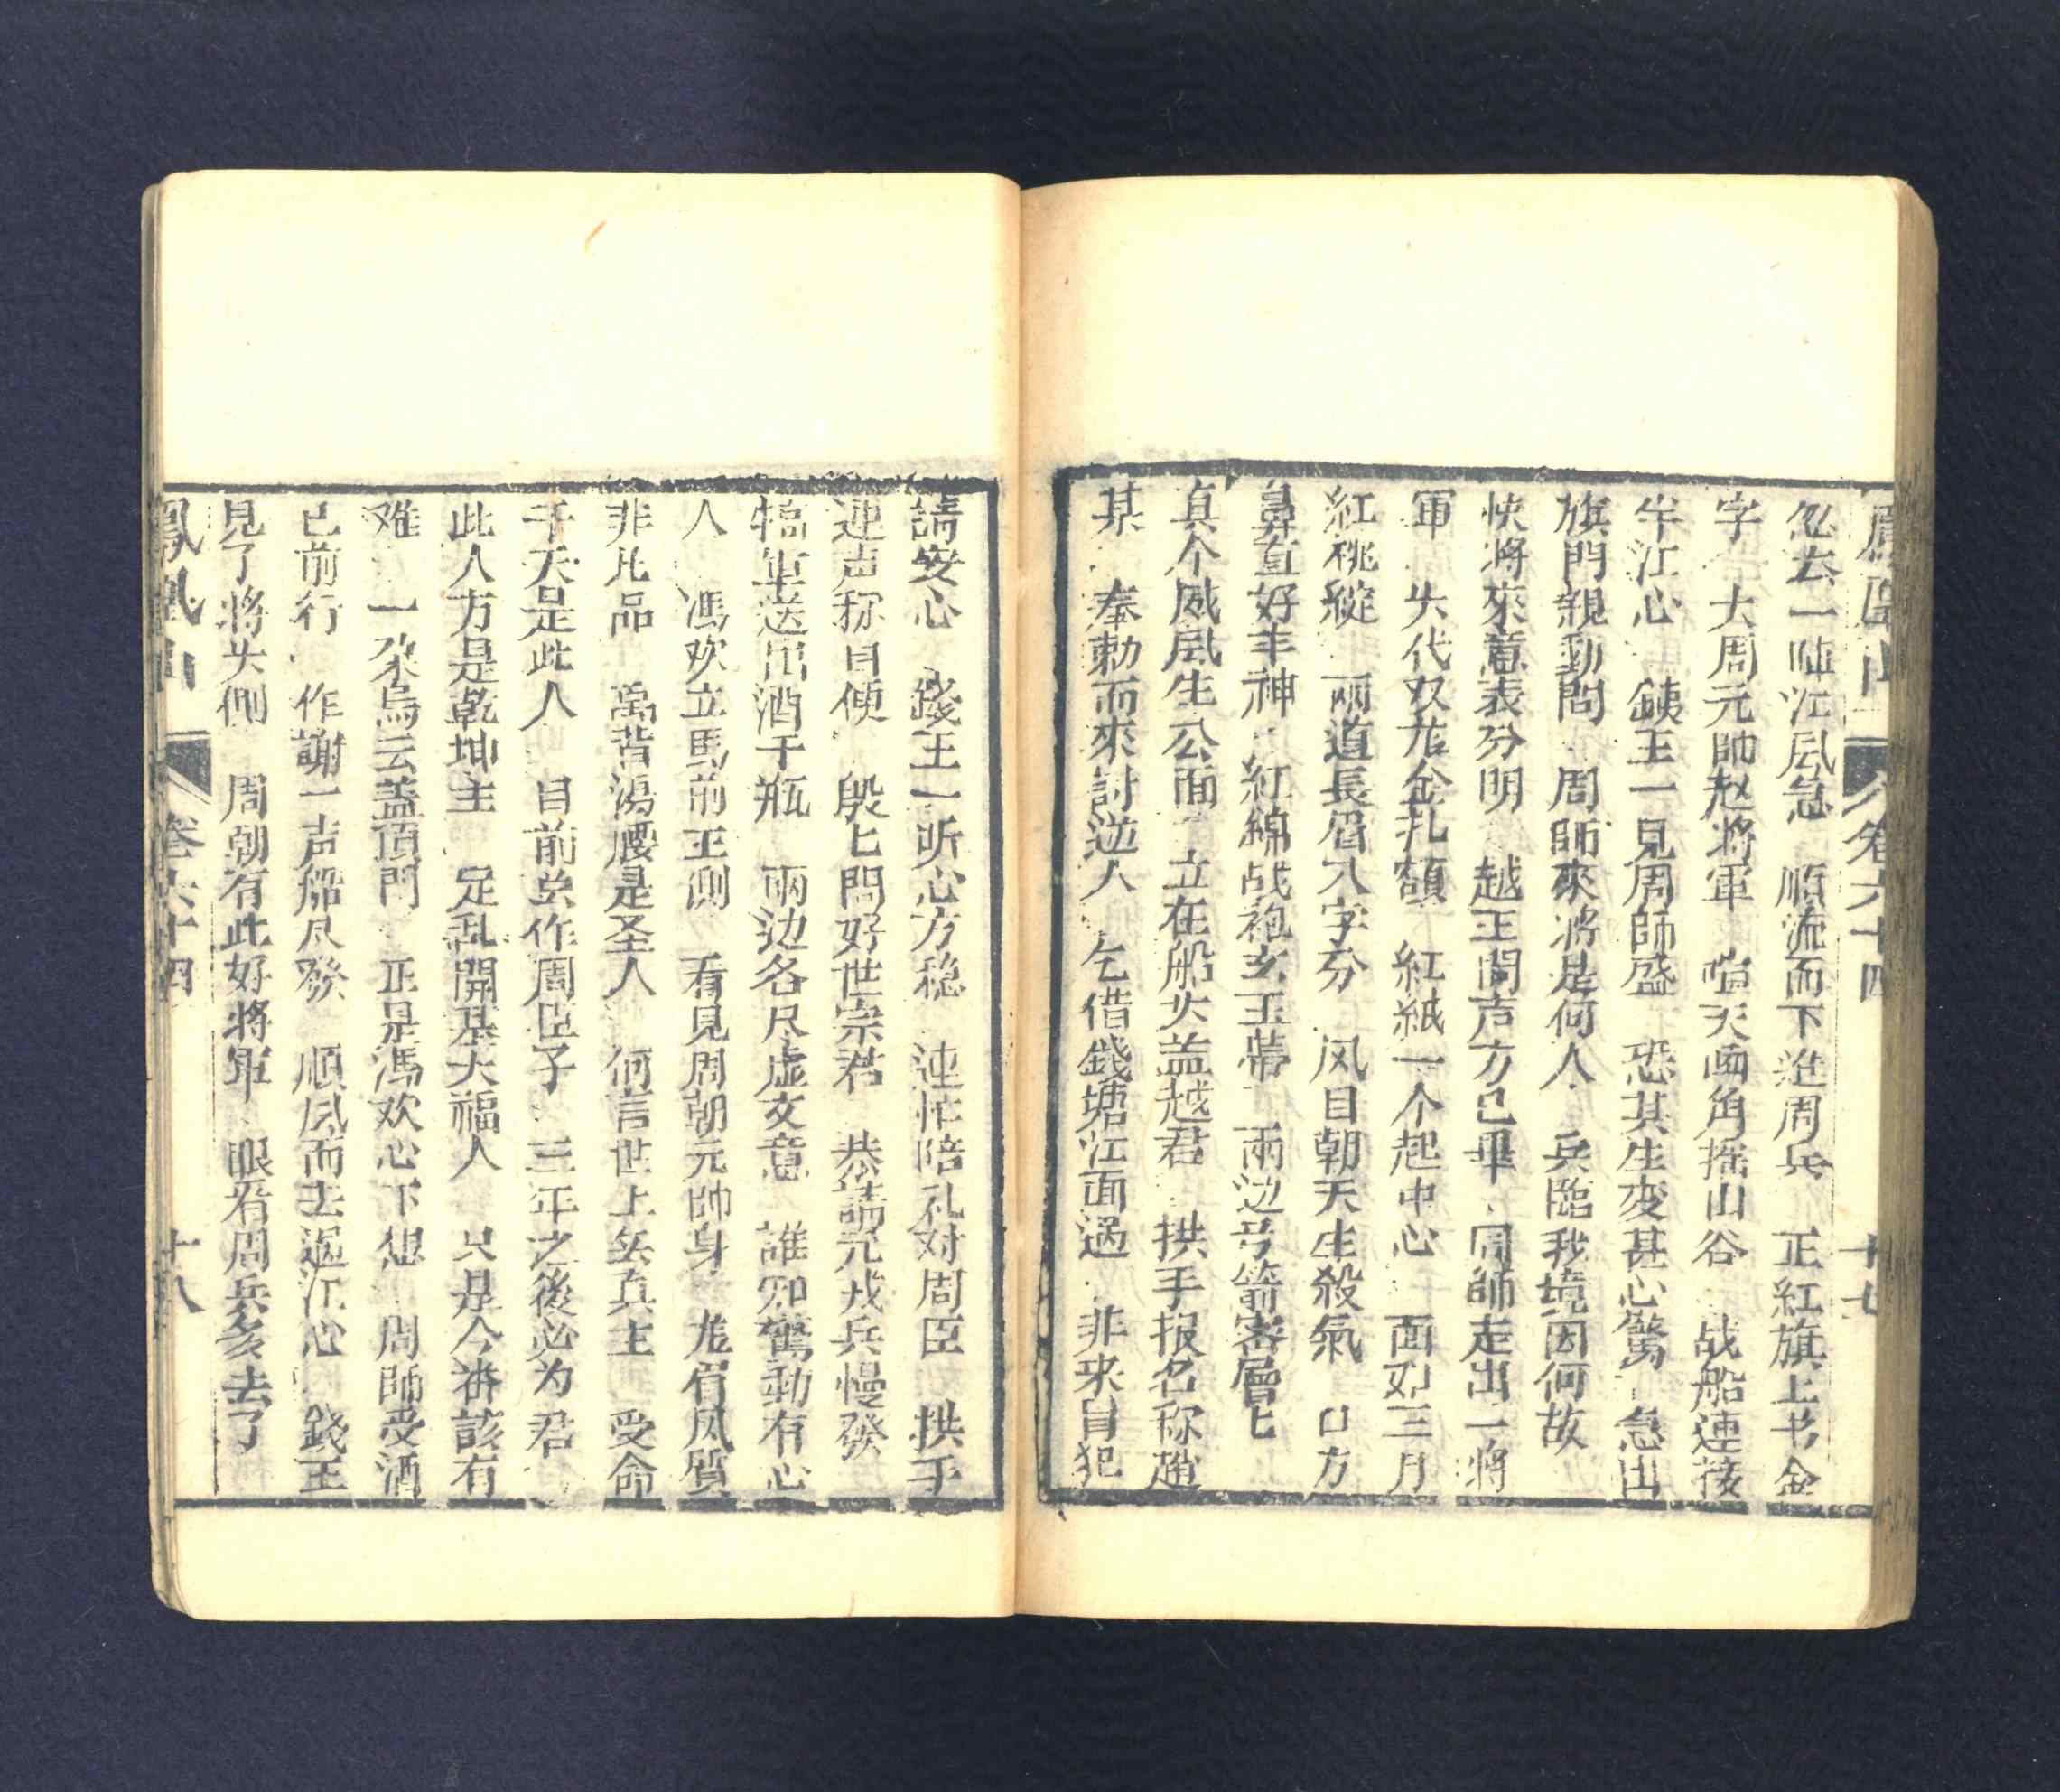 鳳凰山 卷六十四 十七
忽去一陣江風急 順流而下進周兵 正紅旗上书金
字 大周元帥赵將軍 喧天画角摇山谷 战船連接
半江心 錢王一見周師盛 恐其生变甚心驚 急出
旗門親動問 周師來將是何人 兵臨我境因何故
快將來意表分明 越王問声方已畢 周師走出一將
軍 头代双龙金扎額 紅紙一个起中心 面如三月
紅桃綻 兩道長眉八字分 凤目朝天生殺氣 口方
鼻直好丰神 紅綿战袍玄玉帶 兩边弓箭密層匕
真个威風生公面 立在船头盖越君 拱手报名称趙
某 奉勅而來討逆人 乞借錢塘江面過 非来冒犯
請安心 錢王一听心方稳 連忙陪礼对周臣 拱手
連声称自便 殷匕問好世宗君 恭請元戎兵慢發
犒軍送出酒千瓶 兩边各尽虚文意 誰知驚動有心
人 馮欢立馬前王側 看見周朝元帥身 龙眉凤質
非比品 禹背湯腰是圣人 何言世上無真主 受命
于天是此人 目前兹作周臣子 三年之後必为君
此人方是乾坤主 定乱開基大福人 只是今番該有
难 一朶烏云盖頂門 正是馮欢心下想 周師受酒
已前行 作謝一声船尽發 順風而去過江心 錢王
見了將头側 周朝有此好將軍 眼看周兵多去了
鳳凰山 卷六十四 十八